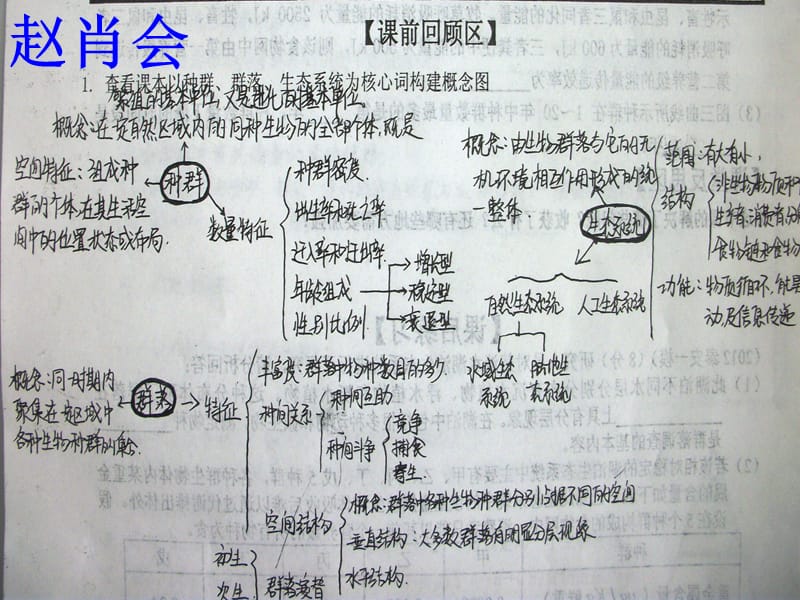 赵肖会
【课前回顾区】
1. 查看课本以种群、群落、生态系统为核心词构建概念图
繁殖的基本单位,又是进化的基本单位
概念:在一定自然区域内的同种生物的全部个体,既是
空间特征:组成种
群的个体在其生活空
间中的位置状态或布局.
种群
数量特征
种群密度.
出生率和死亡率
迁入率和迁出率.
年龄组成
性别比例
增长型
稳定型
衰退型
概念:由生物群落与它的无
机环境相互作用形成的统
一整体.
生态系统
范围:有大有小,
结构
非生物物质和
生产者 消费者 分
食物链和食物
功能:物质循环,能量
动及信息传递
自然生态系统
人工生态系统
水域生态
系统
陆地生
态系统
概念:同一时期内
聚集在一定区域中
各种生物种群的集合.
群落
特征
丰富度:群落中物种数目的多少.
种间关系
种间互助
种间斗争
竞争
捕食
寄生.
空间结构
概念:群落中各种生物种群分别占据不同的空间
垂直结构:大多数群落有明显分层现象
水平结构.
初生
次生.
群落演替